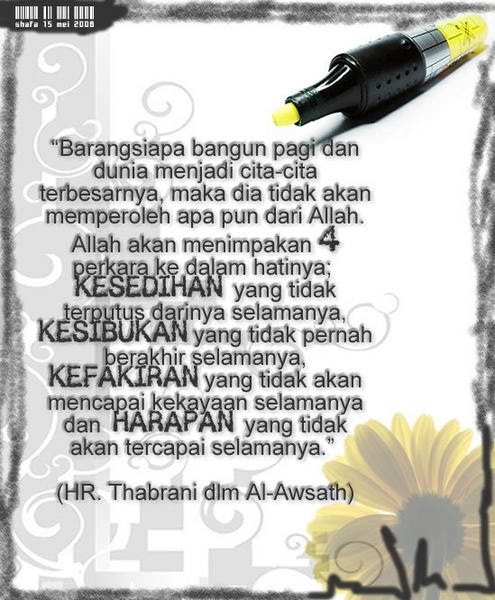 shafa 15 mei 2008
“Barangsiapa bangun pagi dan
dunia menjadi cita-cita
terbesarnya, maka dia tidak akan
memperoleh apa pun dari Allah.
Allah akan menimpakan 4
perkara ke dalam hatinya;
KESEDIHAN yang tidak
terputus darinya selamanya,
KESIBUKAN yang tidak pernah
berakhir selamanya,
KEFAKIRAN yang tidak akan
mencapai kekayaan selamanya
dan HARAPAN yang tidak
akan tercapai selamanya.”
(HR. Thabrani dlm Al-Awsath)